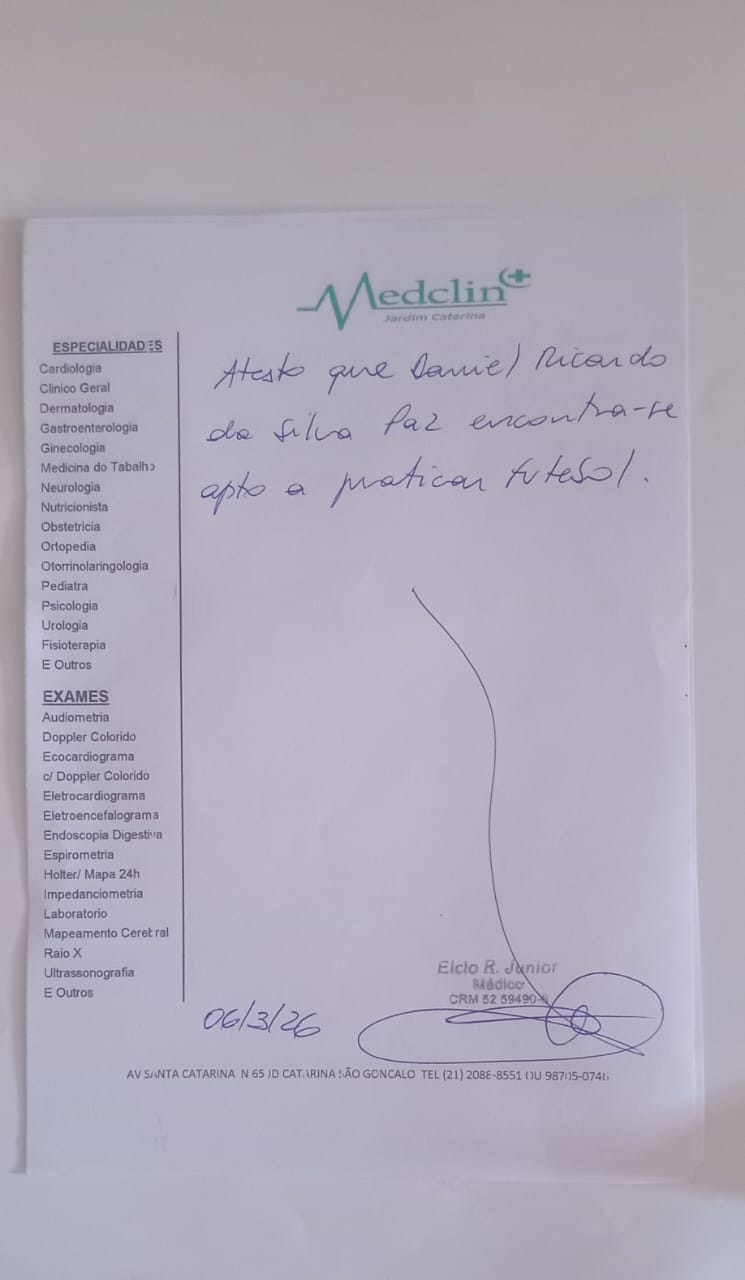 Medclin
Jardim Catarina
ESPECIALIDADES
Cardiologia
Clinico Geral
Dermatologia
Gastroenterologia
Ginecologia
Medicina do Tabalho
Neurologia
Nutricionista
Obstetricia
Ortopedia
Otorrinolaringologia
Pediatra
Psicologia
Urologia
Fisioterapia
E Outros
EXAMES
Audiometria
Doppler Colorido
Ecocardiograma
c/ Doppler Colorido
Eletrocardiograma
Eletroencefalograma
Endoscopia Digestiva
Espirometria
Holter/ Mapa 24h
Impedanciometria
Laboratorio
Mapeamento Cerebral
Raio X
Ultrassonografia
E Outros
Atesto que Daniel Ricardo
da Silva Paz encontra-se
apto a praticar futebol.
Elcio R. Junior
Médico
CRM 52 59490-
06/3/26
AV SANTA CATARINA N 65 JD CATARINA SÃO GONCALO TEL (21) 2088-8551 OU 98705-0746